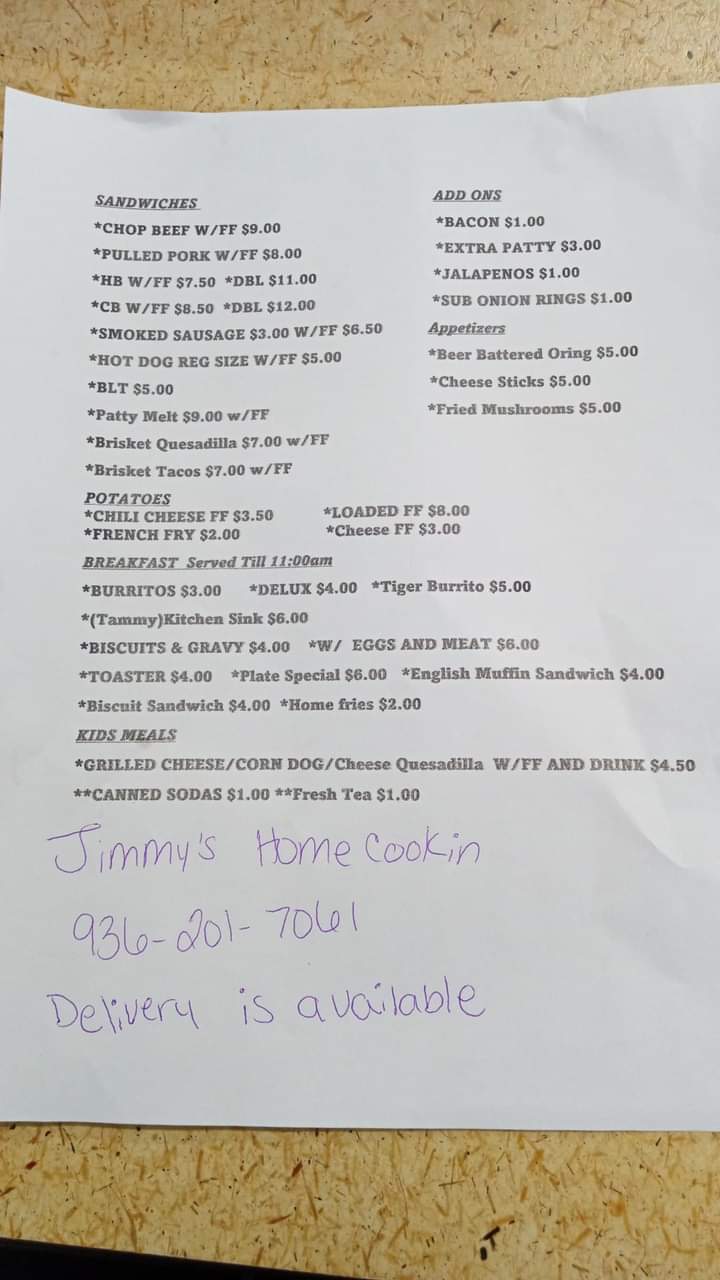 SANDWICHES
*CHOP BEEF W/FF $9.00
*PULLED PORK W/FF $8.00
*HB W/FF $7.50 *DBL $11.00
*CB W/FF $8.50 *DBL $12.00
*SMOKED SAUSAGE $3.00 W/FF $6.50
*HOT DOG REG SIZE W/FF $5.00
*BLT $5.00
*Patty Melt $9.00 w/FF
*Brisket Quesadilla $7.00 w/FF
*Brisket Tacos $7.00 w/FF
ADD ONS
*BACON $1.00
*EXTRA PATTY $3.00
*JALAPENOS $1.00
*SUB ONION RINGS $1.00
Appetizers
*Beer Battered Oring $5.00
*Cheese Sticks $5.00
*Fried Mushrooms $5.00
POTATOES
*CHILI CHEESE FF $3.50 *LOADED FF $8.00
*FRENCH FRY $2.00 *Cheese FF $3.00
BREAKFAST Served Till 11:00am
*BURRITOS $3.00 *DELUX $4.00 *Tiger Burrito $5.00
*(Tammy)Kitchen Sink $6.00
*BISCUITS & GRAVY $4.00 *W/ EGGS AND MEAT $6.00
*TOASTER $4.00 *Plate Special $6.00 *English Muffin Sandwich $4.00
*Biscuit Sandwich $4.00 *Home fries $2.00
KIDS MEALS
*GRILLED CHEESE/CORN DOG/Cheese Quesadilla W/FF AND DRINK $4.50
**CANNED SODAS $1.00 **Fresh Tea $1.00
Jimmy's Home Cookin
936-201-7061
Delivery is available